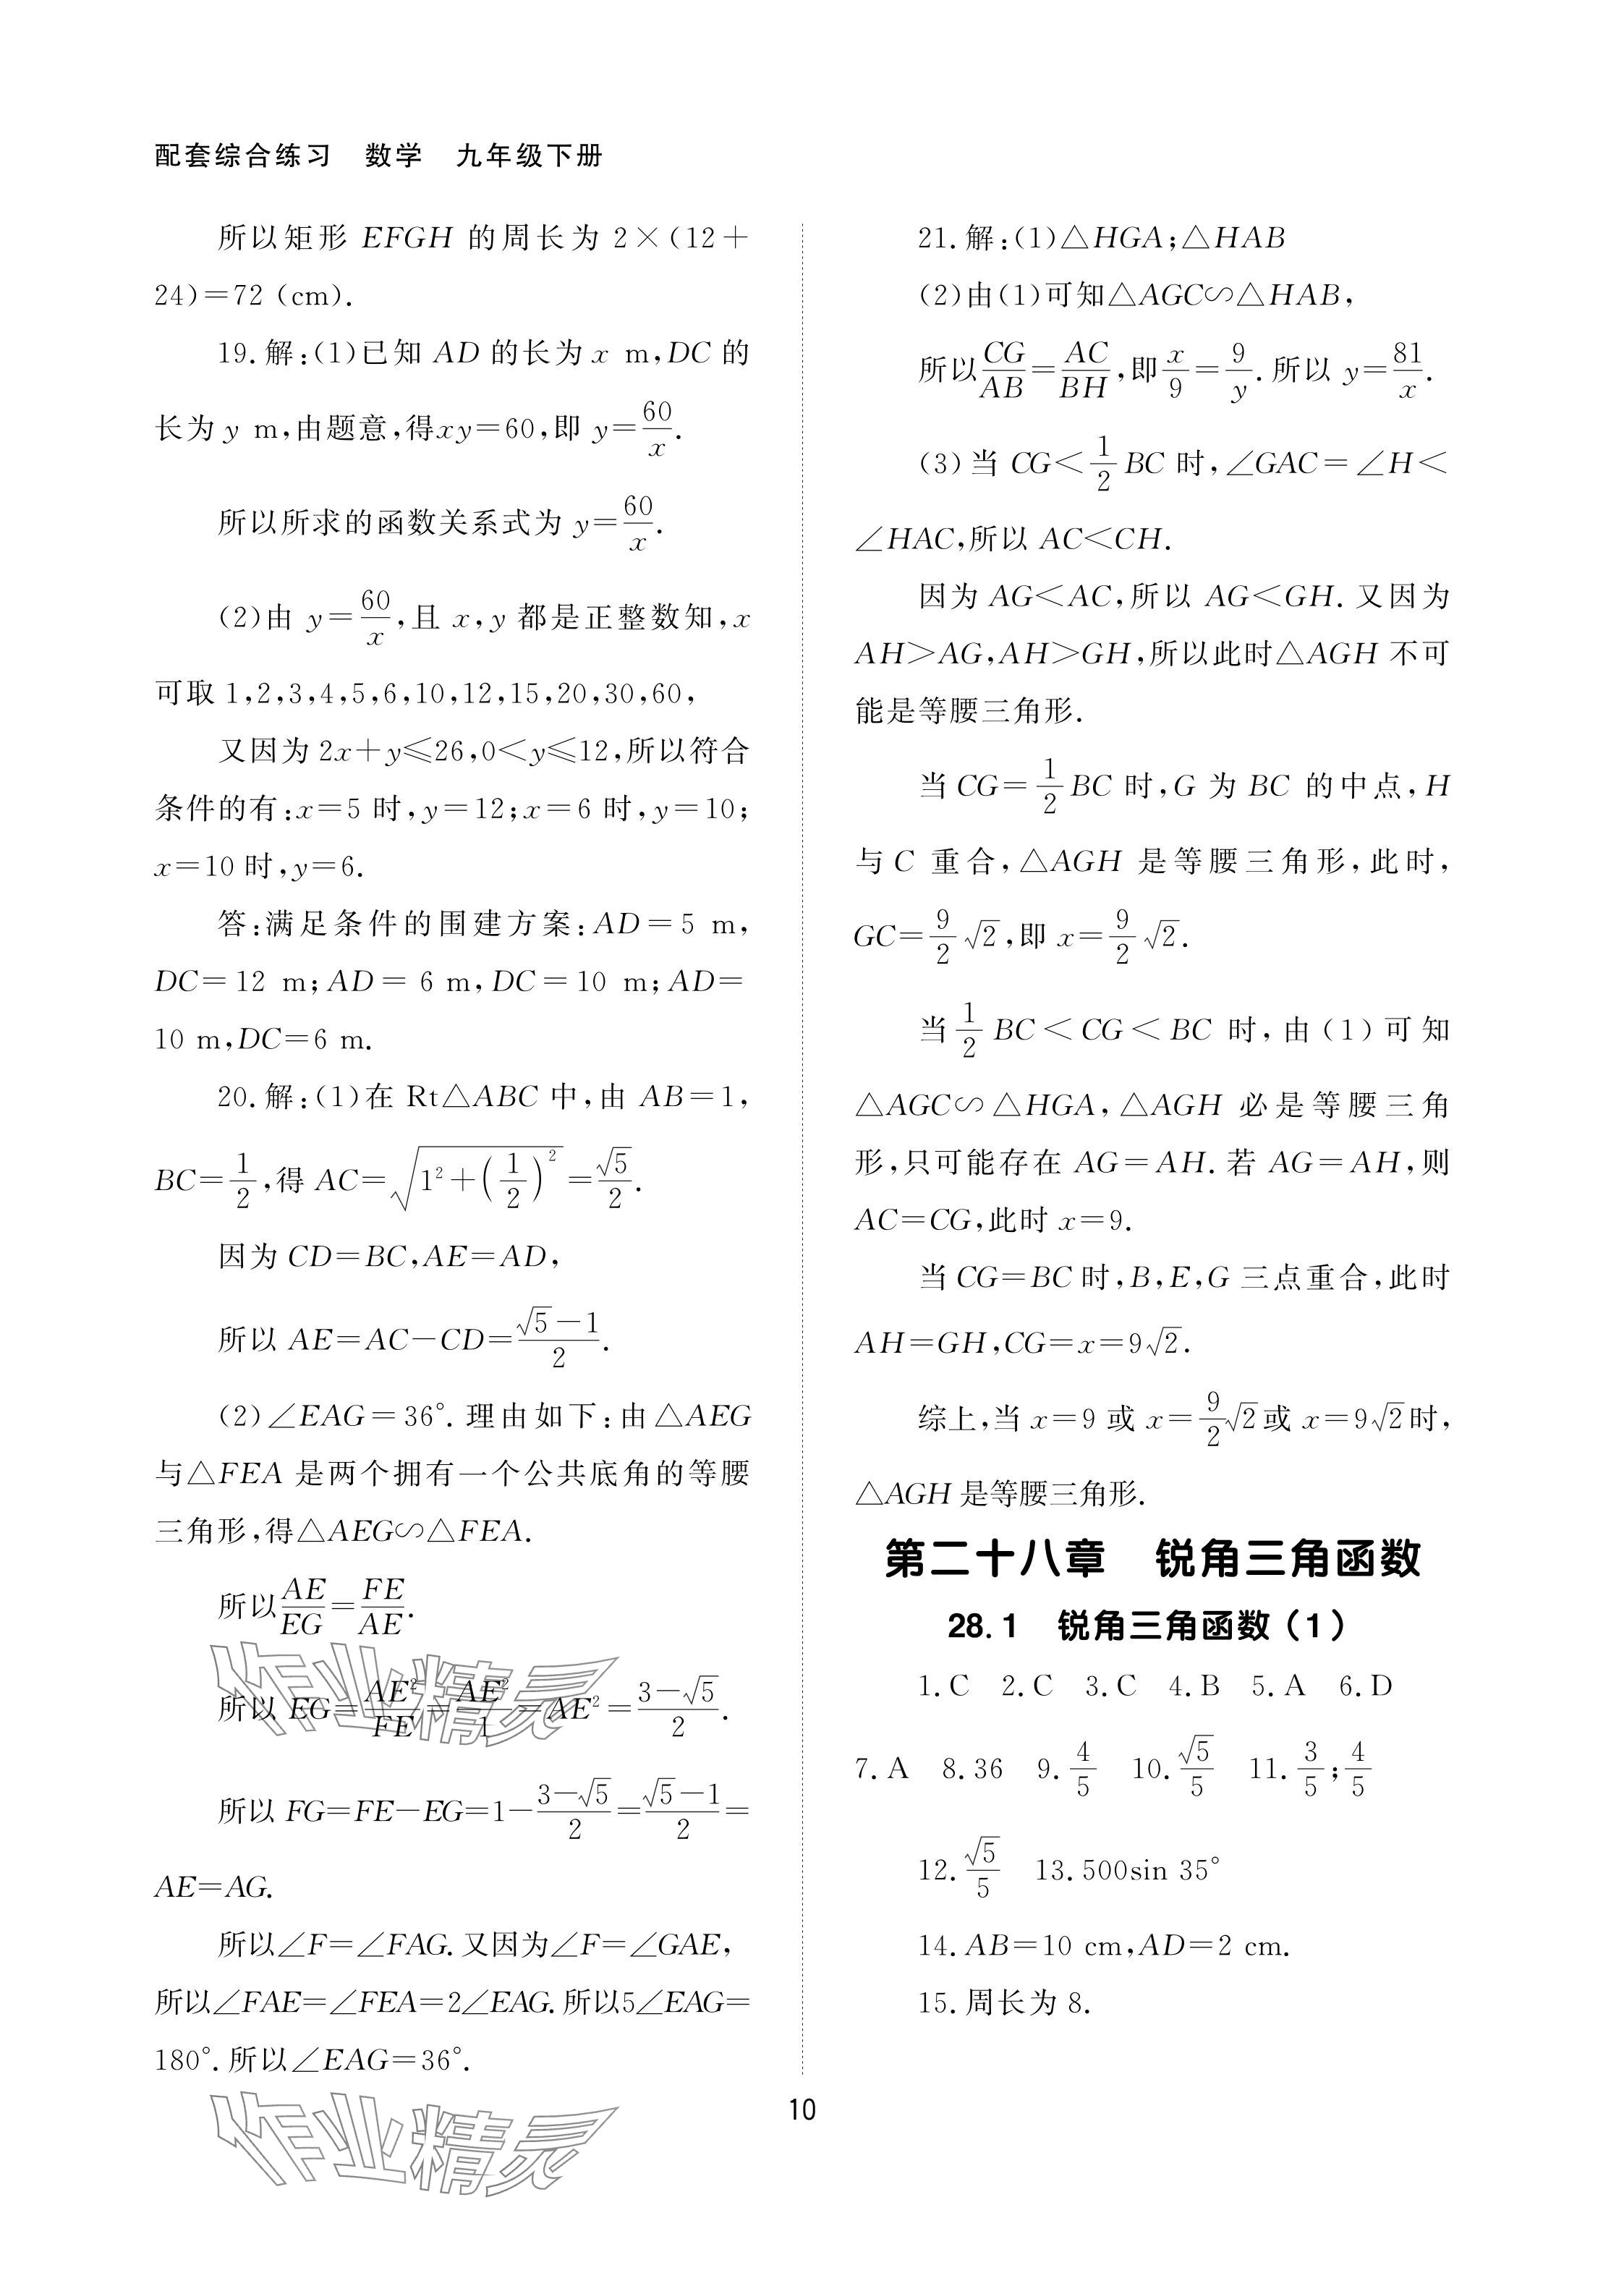 配套综合练习　数学　九年级下册
所以矩形 EFGH 的周长为 2×(12+
24)=72 (cm).
19.解:(1)已知 AD 的长为 x m,DC 的
长为 y m,由题意,得xy=60,即 y=60/x.
所以所求的函数关系式为 y=60/x.
(2)由 y=60/x,且 x,y 都是正整数知,x
可取 1,2,3,4,5,6,10,12,15,20,30,60,
又因为 2x+y≤26,0<y≤12,所以符合
条件的有:x=5 时,y=12;x=6 时,y=10;
x=10 时,y=6.
答:满足条件的围建方案:AD=5 m,
DC=12 m;AD=6 m,DC=10 m;AD=
10 m,DC=6 m.
20.解:(1)在 Rt△ABC 中,由 AB=1,
BC=1/2,得 AC=√(1²+(1/2)²)=√5/2.
因为 CD=BC,AE=AD,
所以 AE=AC-CD=(√5-1)/2.
(2)∠EAG=36°.理由如下:由△AEG
与△FEA 是两个拥有一个公共底角的等腰
三角形,得△AEG∽△FEA.
所以AE/EG=FE/AE.
所以 EG=AE²/FE=AE²/1=AE²=(3-√5)/2.
所以 FG=FE-EG=1-(3-√5)/2=(√5-1)/2=
AE=AG.
所以∠F=∠FAG.又因为∠F=∠GAE,
所以∠FAE=∠FEA=2∠EAG.所以5∠EAG=
180°.所以∠EAG=36°.
21.解:(1)△HGA;△HAB
(2)由(1)可知△AGC∽△HAB,
所以CG/AB=AC/BH,即x/9=9/y.所以 y=81/x.
(3)当 CG<1/2 BC 时,∠GAC=∠H<
∠HAC,所以 AC<CH.
因为 AG<AC,所以 AG<GH.又因为
AH>AG,AH>GH,所以此时△AGH 不可
能是等腰三角形.
当 CG=1/2 BC 时,G 为 BC 的中点,H
与 C 重合,△AGH 是等腰三角形,此时,
GC=9/2 √2,即 x=9/2 √2.
当 1/2 BC<CG<BC 时,由(1)可知
△AGC∽△HGA,△AGH 必是等腰三角
形,只可能存在 AG=AH.若 AG=AH,则
AC=CG,此时 x=9.
当 CG=BC 时,B,E,G 三点重合,此时
AH=GH,CG=x=9√2.
综上,当 x=9 或 x=9/2 √2或 x=9√2时,
△AGH 是等腰三角形.
第二十八章　锐角三角函数
28.1　锐角三角函数(1)
1.C　2.C　3.C　4.B　5.A　6.D
7.A　8.36　9.4/5　10.√5/5　11.3/5;4/5
12.√5/5　13.500sin 35°
14.AB=10 cm,AD=2 cm.
15.周长为 8.
作业精灵
作业精灵
10